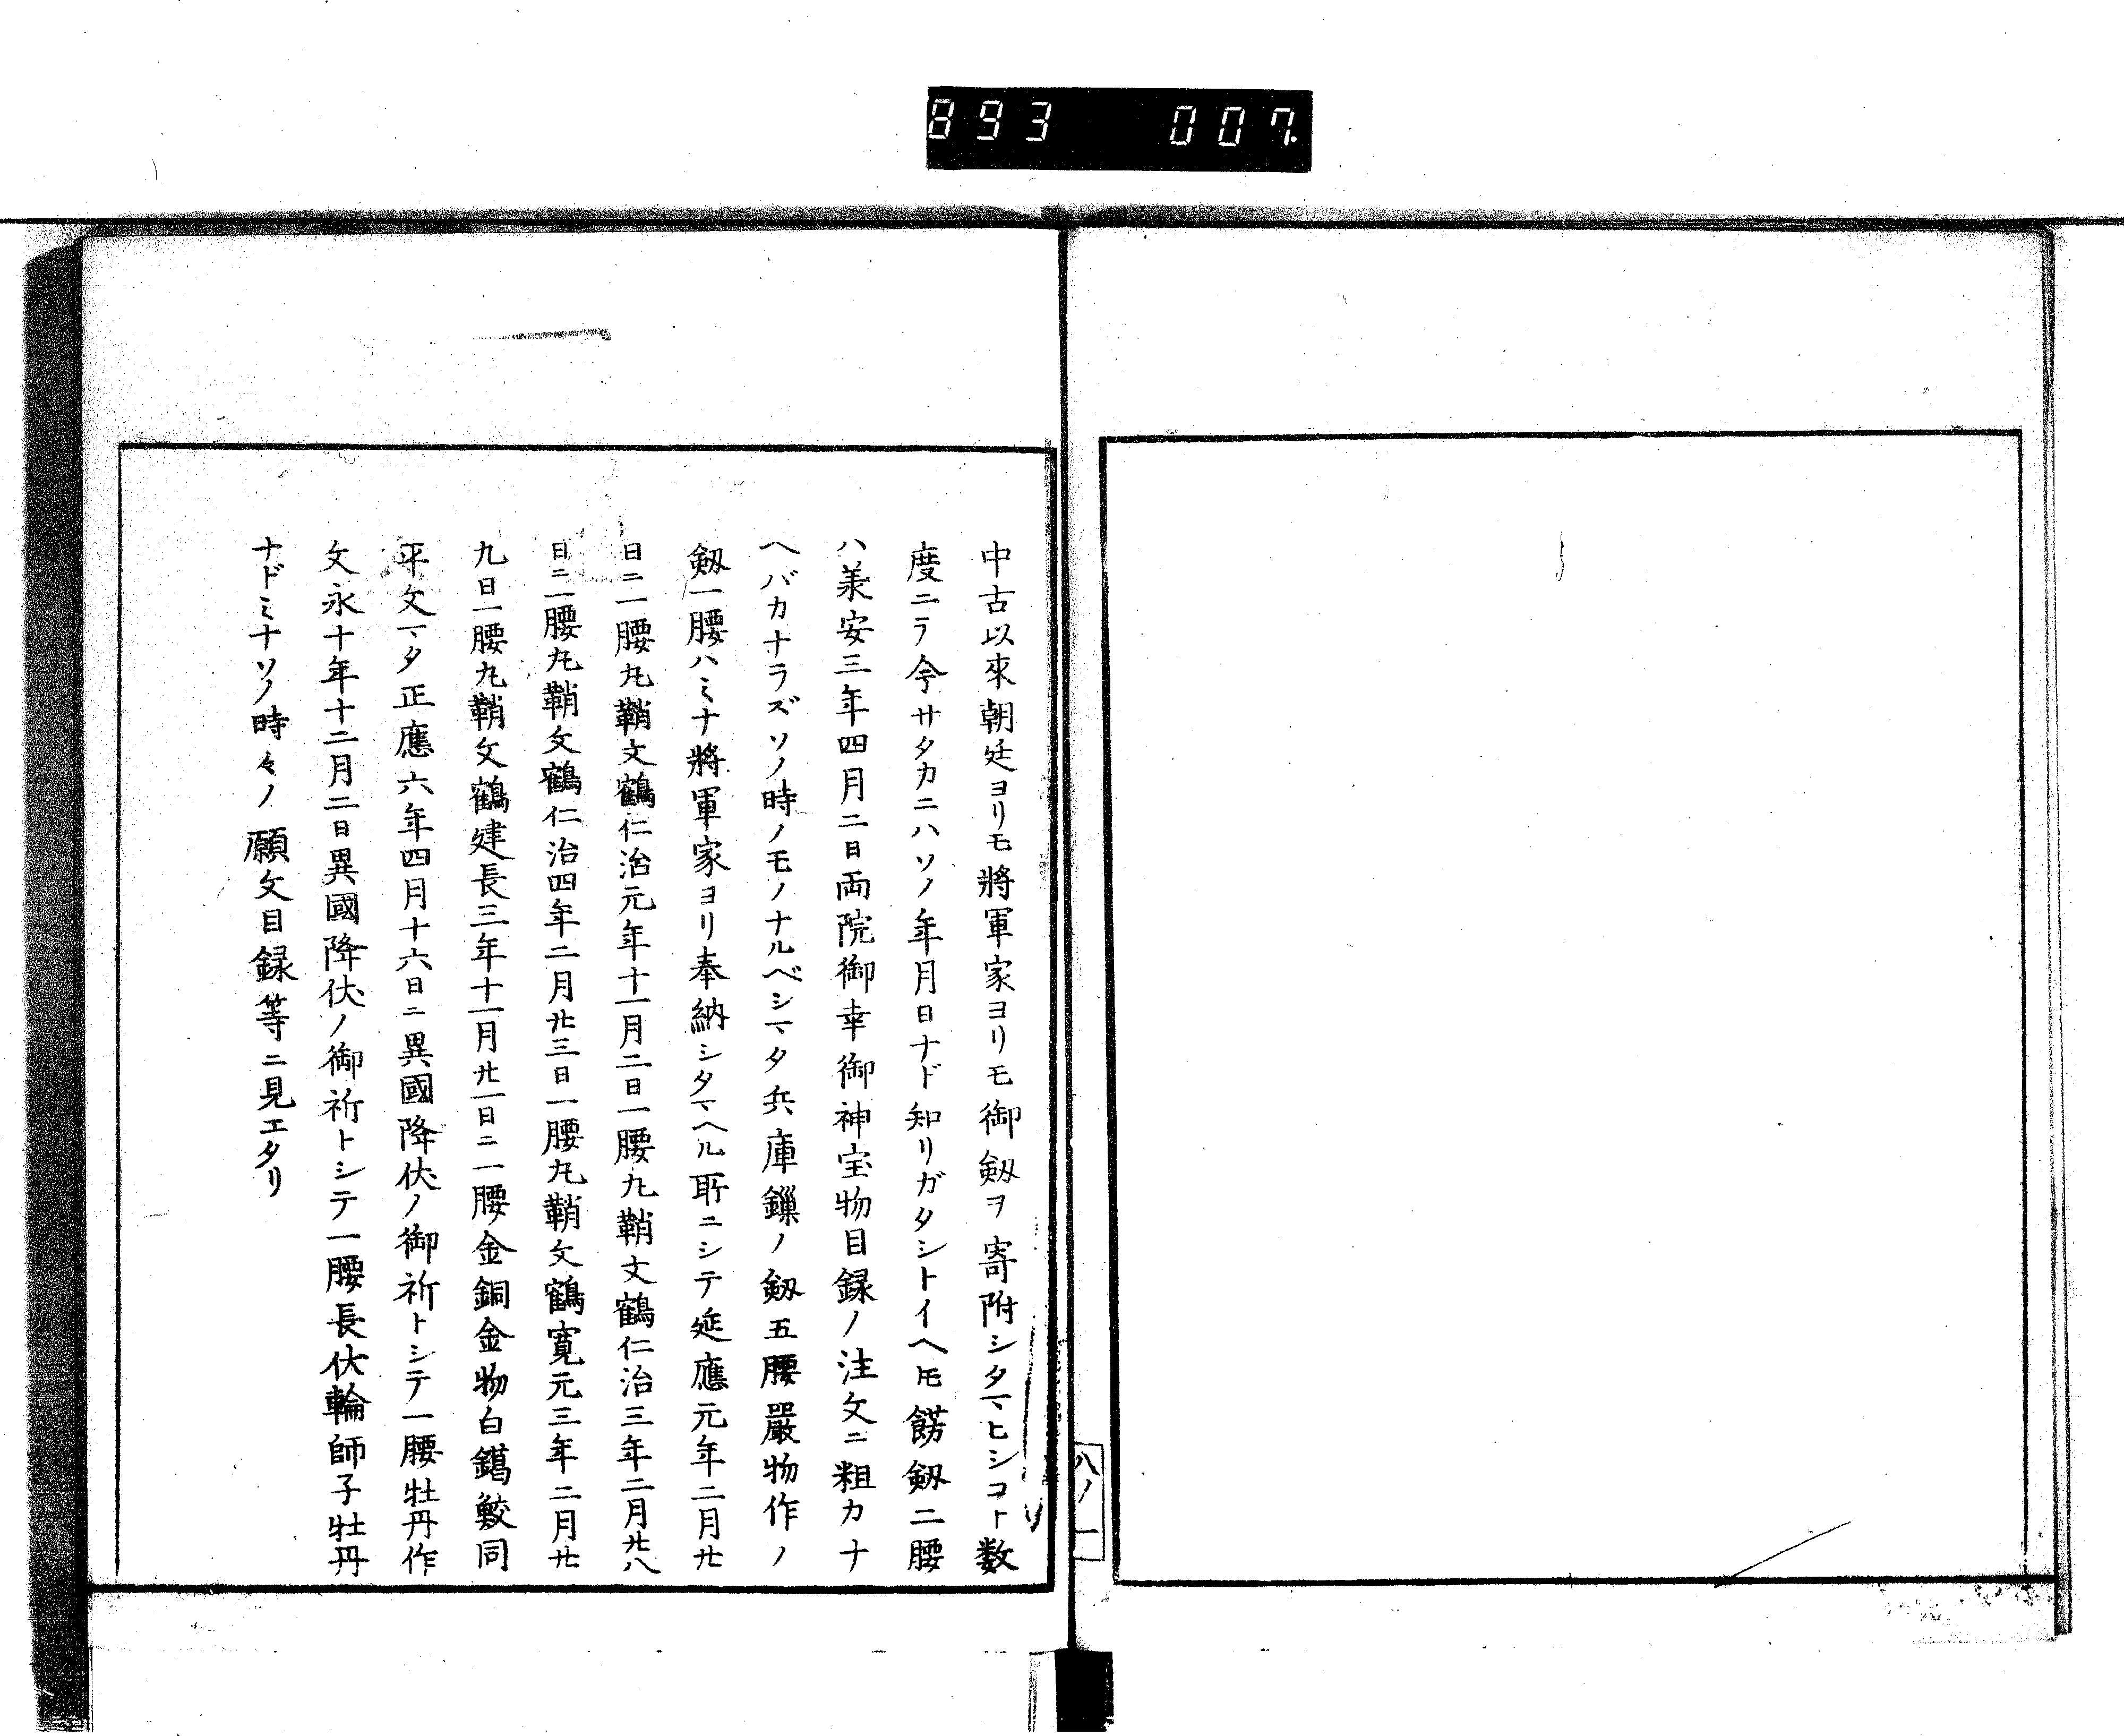 893 007
中古以來朝廷ヨリモ將軍家ヨリモ御劔ヲ寄附シタマヒシコト数
度ニテ今サタカニハソノ年月日ナド知リガタシトイヘ𪜈餝劔二腰
ハ羕安三年四月二日両院御幸御神宝物目録ノ注文ニ粗カナ
ヘバカナラズソノ時ノモノナルベシマタ兵庫鏁ノ劔五腰嚴物作ノ
劔一腰ハミナ將軍家ヨリ奉納シタマヘル所ニシテ延應元年二月廿
日ニ一腰丸鞘文鶴仁治元年十一月二日一腰丸鞘文鶴仁治三年二月廿八
日ニ一腰丸鞘文鶴仁治四年二月廿三日一腰丸鞘文鶴寛元三年二月廿
九日一腰丸鞘文鶴建長三年十一月廿一日ニ一腰金銅金物白鐫鮫同
平文マタ正應六年四月十六日ニ異國降伏ノ御祈トシテ一腰牡丹作
文永十年十二月二日異國降伏ノ御祈トシテ一腰長伏輪師子牡丹
ナドミナソノ時々ノ願文目録等ニ見エタリ
八ノ一